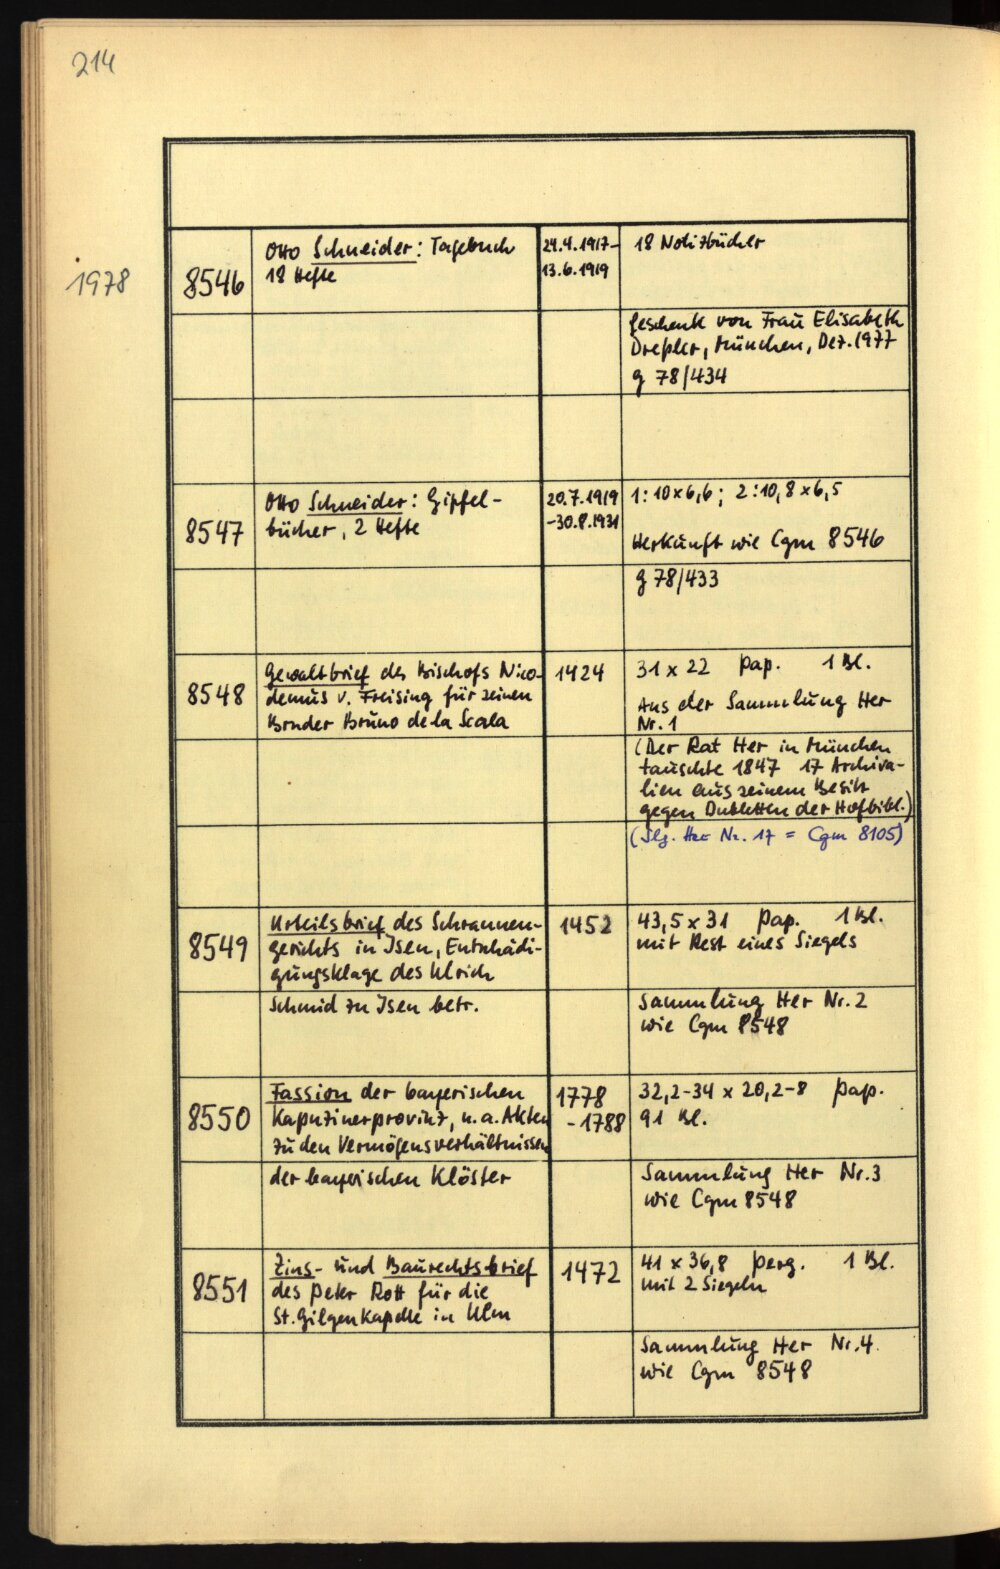 214
1978
8546
Otto Schneider: Tagebuch
18 Hefte
24.4.1917-
13.6.1919
18 Notizbücher
Geschenk von Frau Elisabeth
Dreßler, München, Dez. 1977
g 78/434
8547
Otto Schneider: Gipfel-
bücher, 2 Hefte
20.7.1919
-30.8.1931
1: 10 x 6,6; 2: 10,8 x 6,5
Herkunft wie Cgm 8546
g 78/433
8548
Gewaltbrief des Bischofs Nico-
demus v. Freising für seinen
Bruder Bruno de la Scala
1424
31 x 22 Pap. 1 Bl.
Aus der Sammlung Her
Nr. 1
(Der Rat Her in München
tauschte 1847 17 Archiva-
lien aus seinem Besitz
gegen Dubletten der Hofbibl.)
(Slg. Her Nr. 17 = Cgm 8105)
8549
Urteilsbrief des Schrannen-
gerichts in Isen, Entschädi-
gungsklage des Ulrich
Schmid zu Isen betr.
1452
43,5 x 31 Pap. 1 Bl.
mit Rest eines Siegels
Sammlung Her Nr. 2
wie Cgm 8548
8550
Fassion der bayerischen
Kapuzinerprovinz, u. a. Akten
zu den Vermögensverhältnissen
der bayerischen Klöster
1778
-1788
32,2-34 x 20,2-8 Pap.
91 Bl.
Sammlung Her Nr. 3
wie Cgm 8548
8551
Zins- und Baurechtsbrief
des Peter Rott für die
St. Gilgen Kapelle in Ulm
1472
41 x 36,8 Perg. 1 Bl.
mit 2 Siegeln
Sammlung Her Nr. 4.
wie Cgm 8548